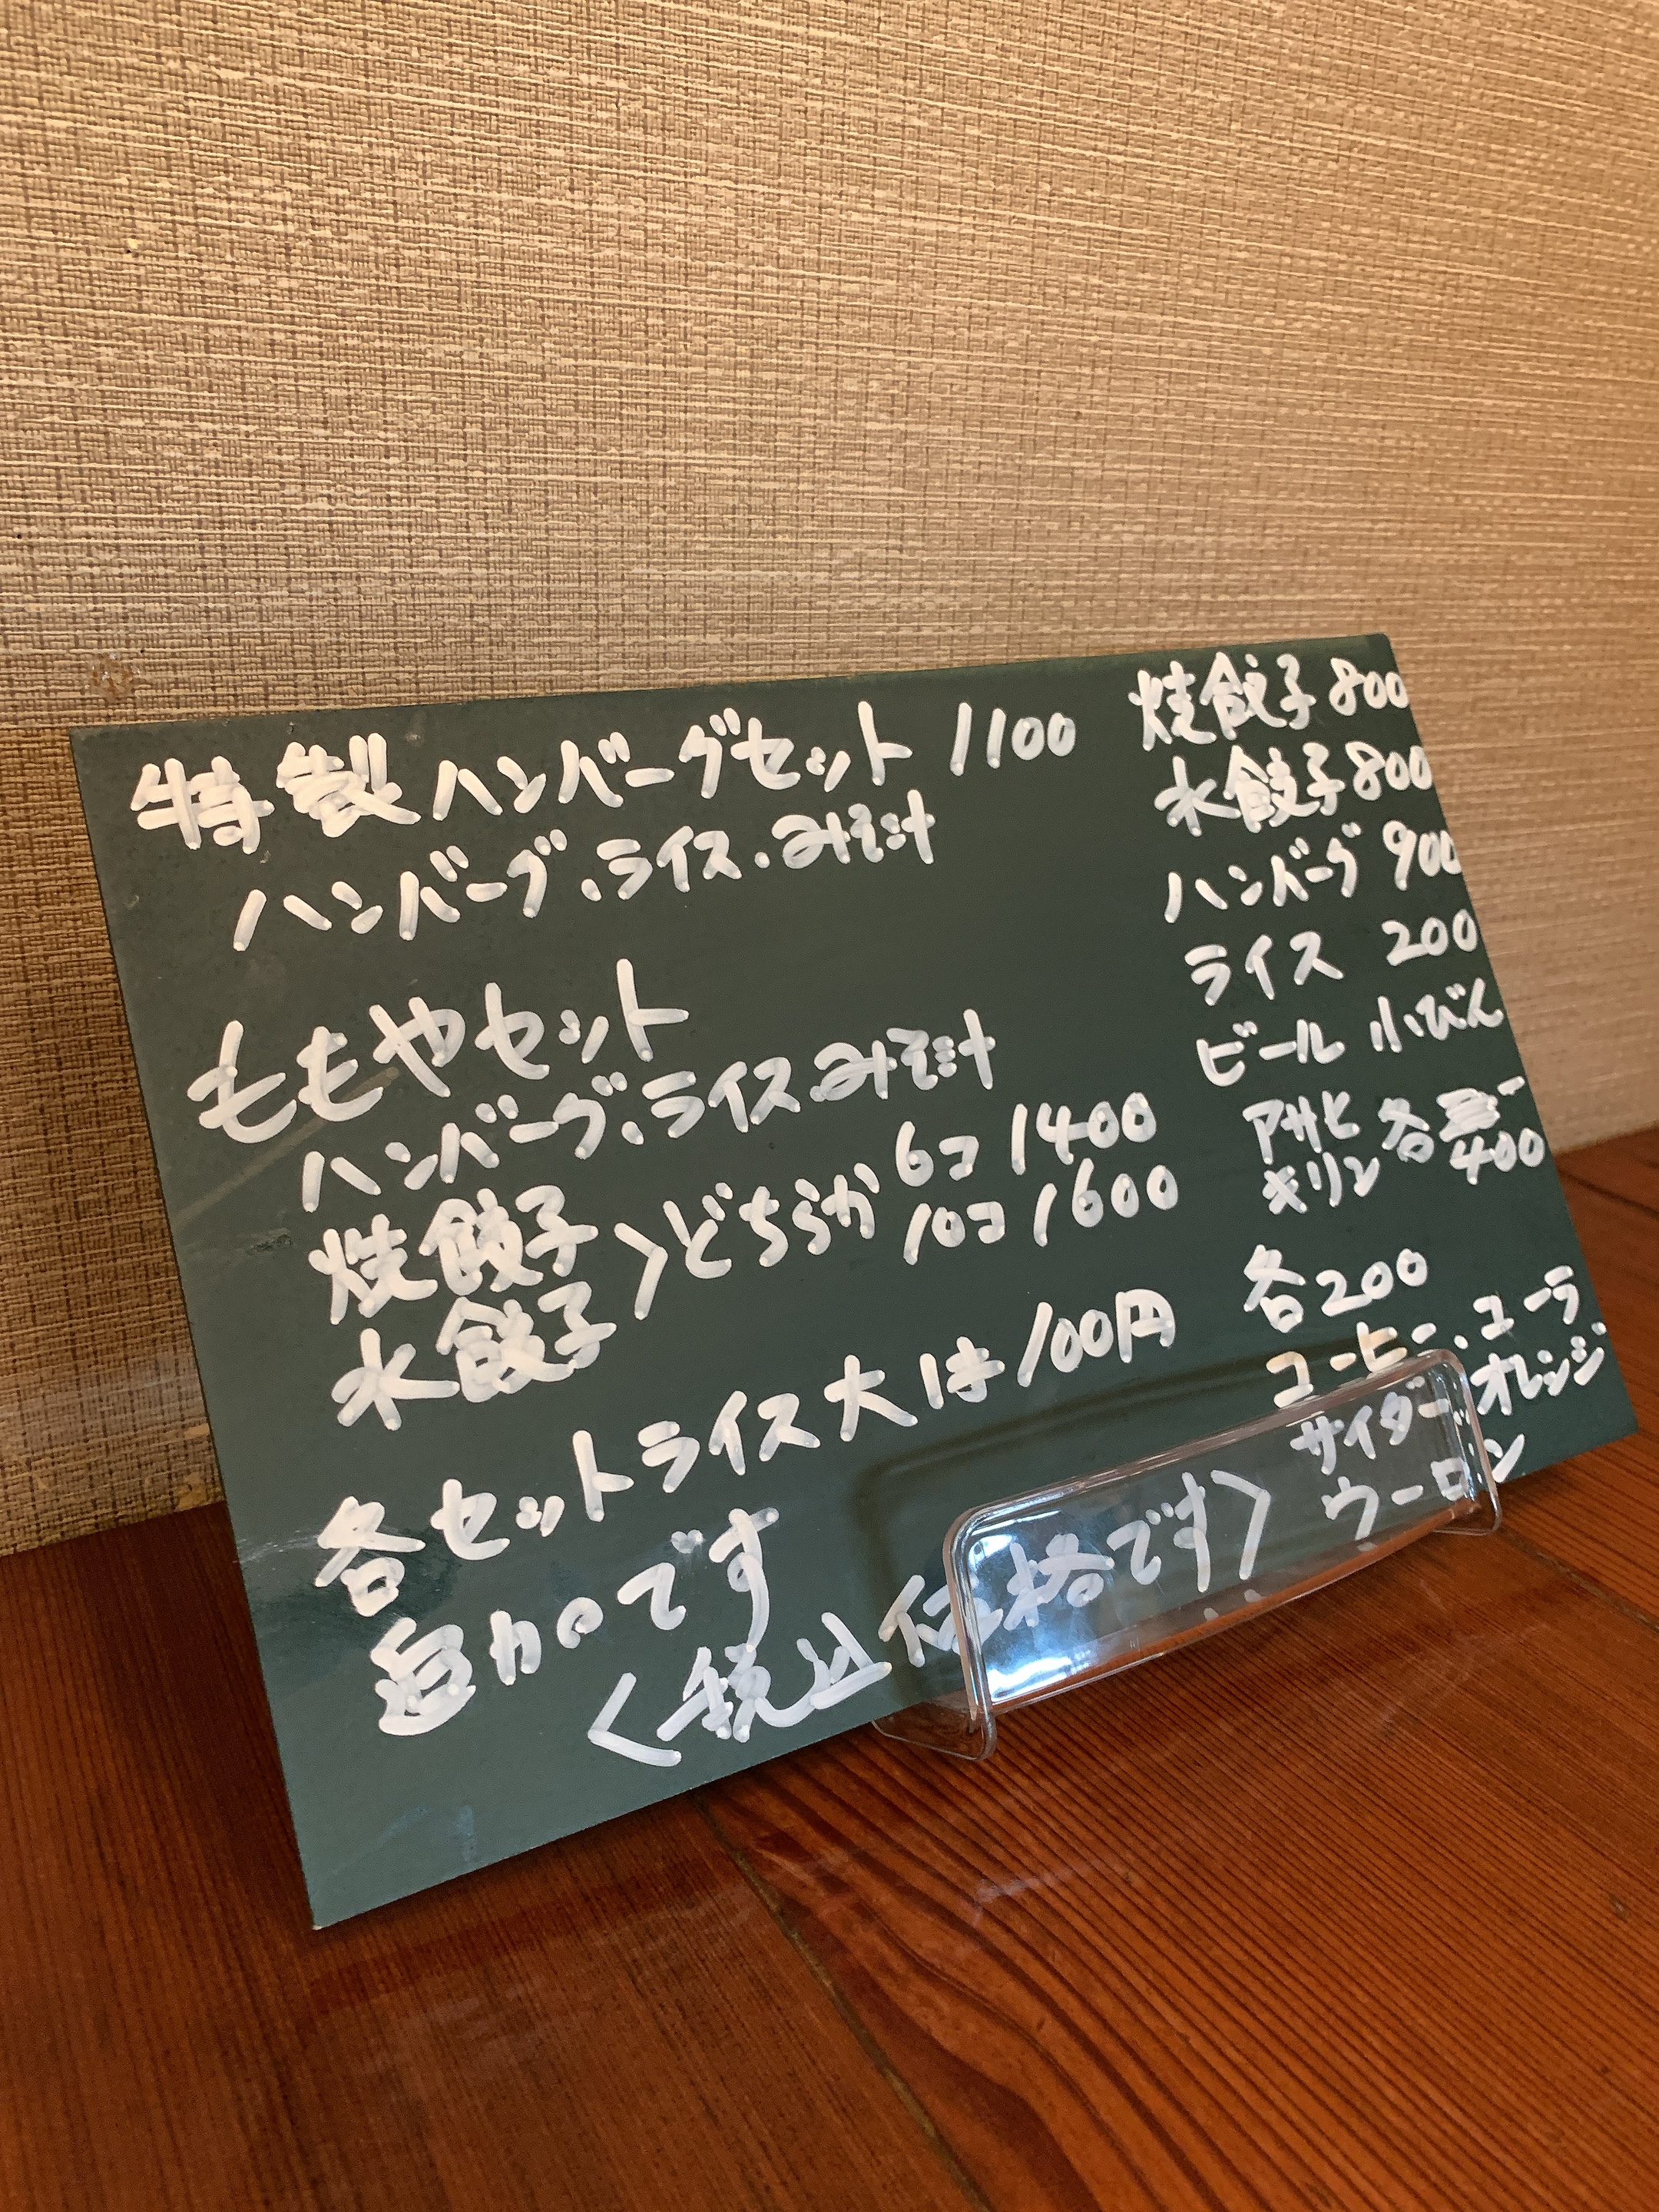 特製ハンバーグセット 1100
ハンバーグ.ライス.みそ汁
ももやセット
ハンバーグ.ライス.みそ汁
焼餃子>どちらか 6コ 1400
水餃子 10コ 1600
各セットライス大は100円
追加です
<税込価格です>
焼餃子 800
水餃子 800
ハンバーグ 900
ライス 200
ビール 小びん
アサヒ 各
キリン 400
各200
コーヒー.コーラ
サイダー.オレンジ
ウーロン